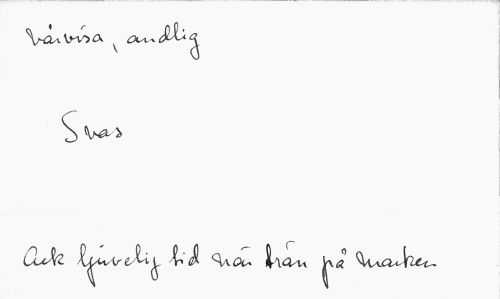 Vårvisa, andlig
Svas
Ack ljuvelig tid när trän på marken